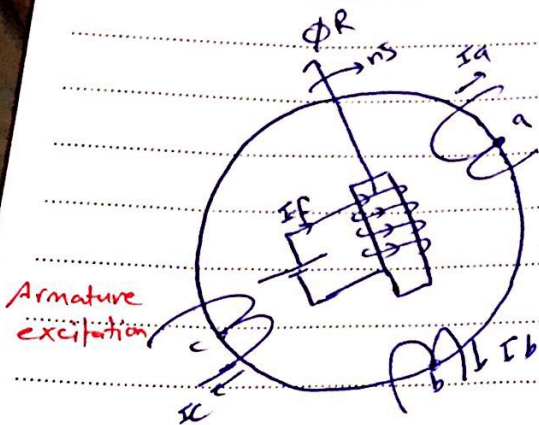 ΦR
ns
Ia
a
If
Armature
excitation
c
Ic
b
Ib